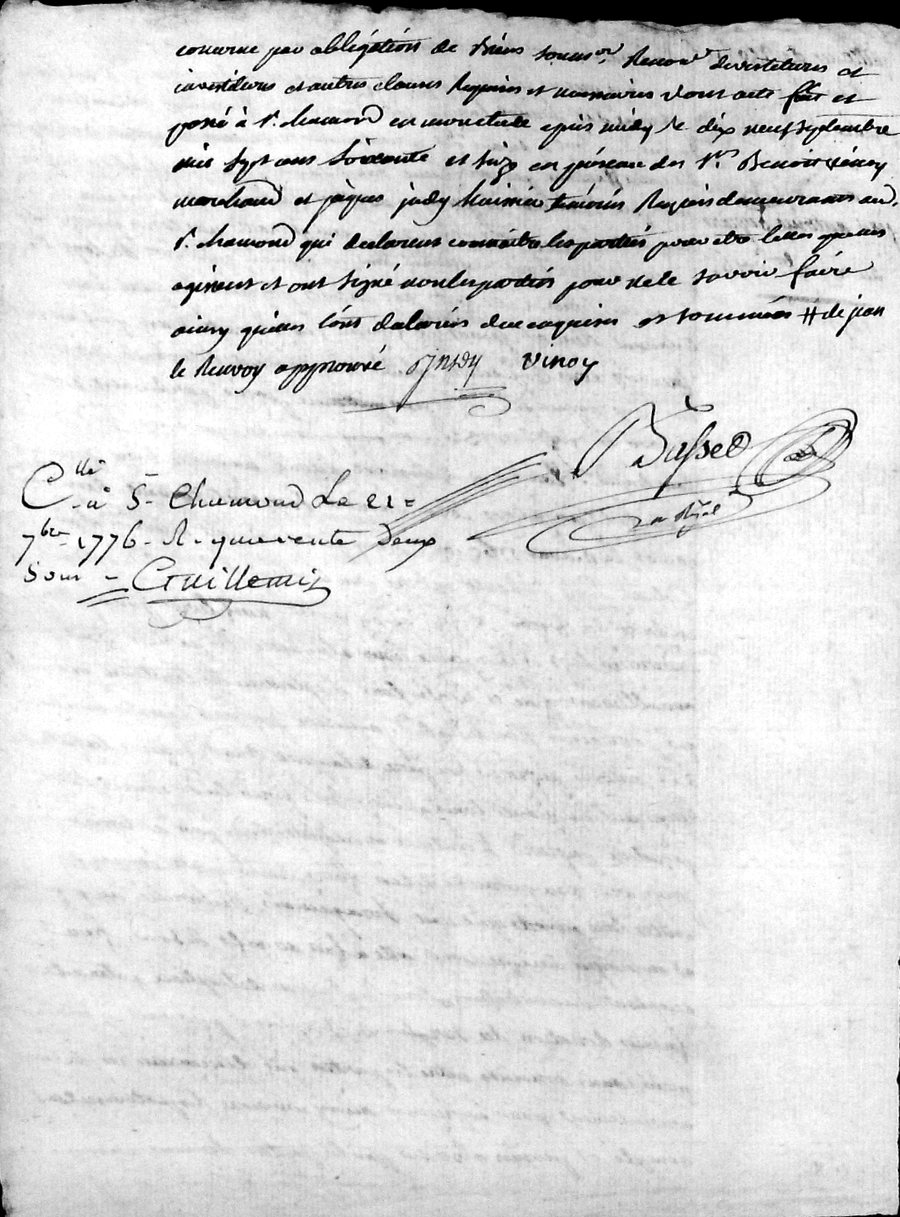 concerne par obligation de biens soumson Renonon devestitures et
investitures et autres clauses Requises et necessaires dont acte fait et
passé à St chamond en mon etude apres midy le dix neuf septembre
mil sept cens soixante et seize en presence des Srs Benoit vinoy
marchand et jâques demeurants aud.
St chamond qui declarent connoitre les parties pour etre telles quelles
agissent et ont signé non les parties pour ne le savoir faire
ainsy quelles l'ont declarées de ce enquises et sommées # de jean
le Renvoy approuvé vinoy
Basset
n Ryal
Cllé à St Chamond Le 21=
7bre 1776 - R - quarente deux
sous - Guillemin